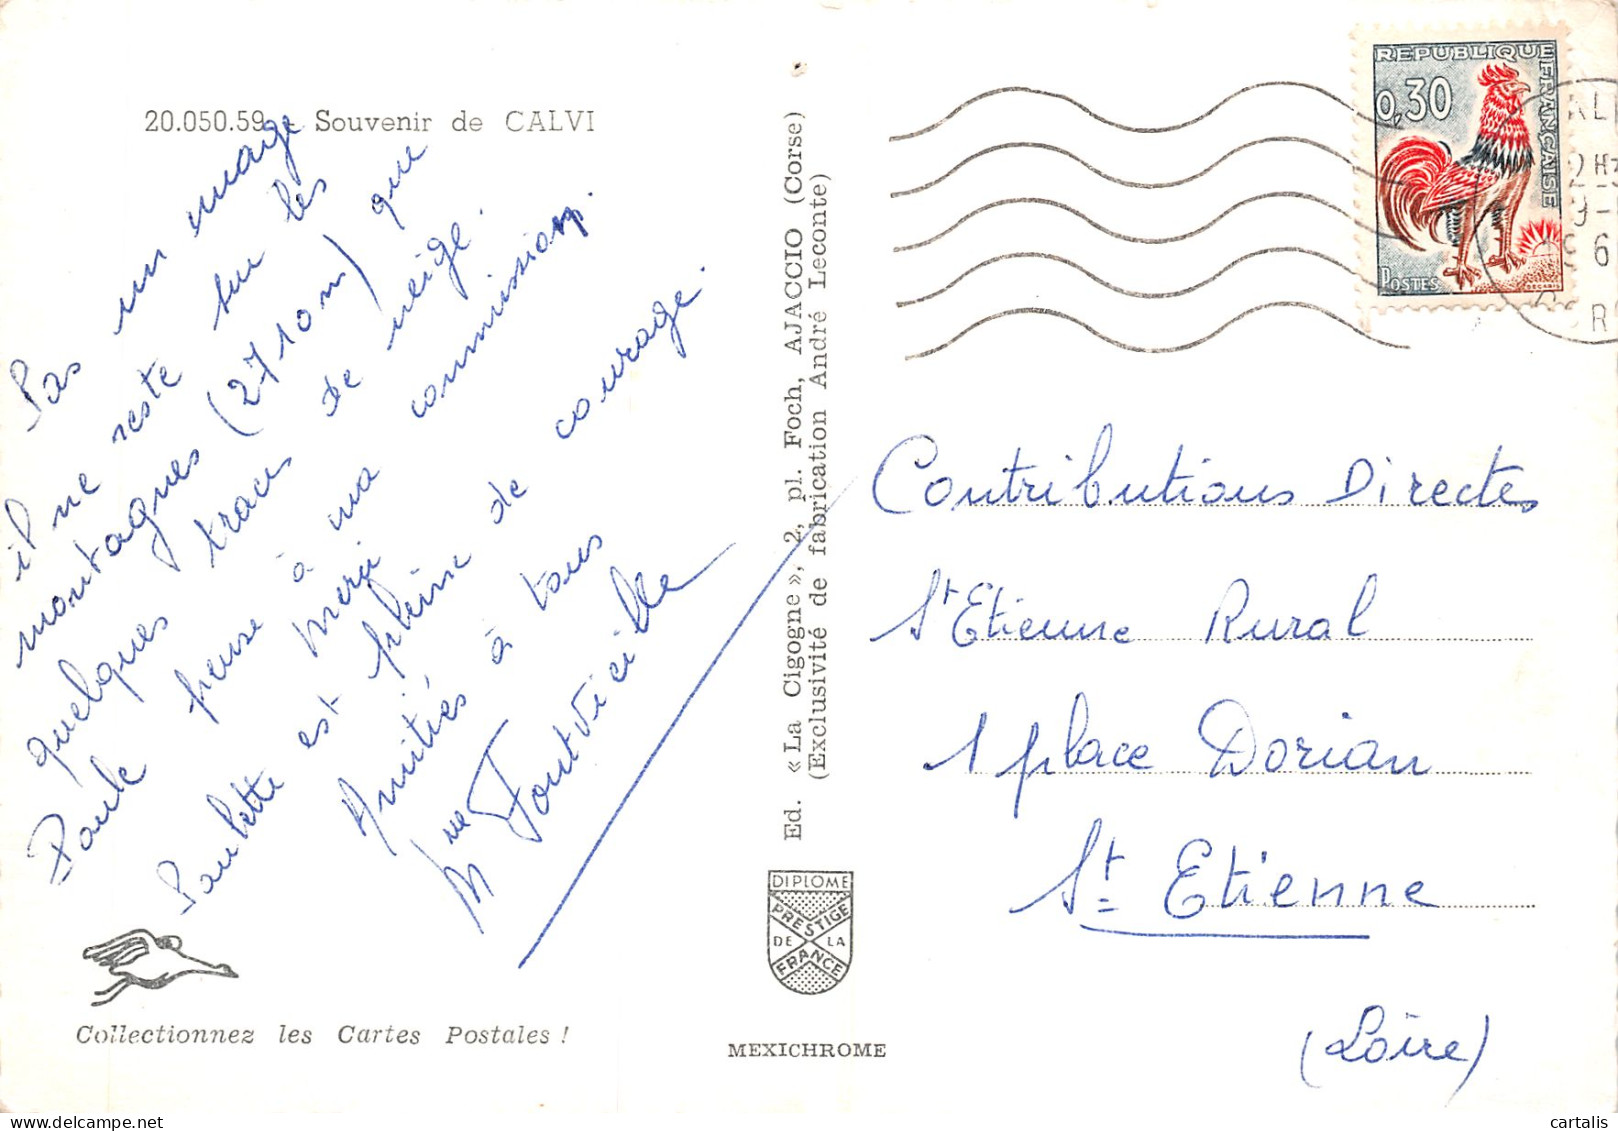 20.050.59 - Souvenir de CALVI
Pas un nuage
il ne reste sur les
montagnes (2710m) que
quelques traces de neige.
Paule pense à ma commission.
Merci
Paulette est pleine de courage.
Amitiés à tous
Mme Fontvieille
Collectionnez les Cartes Postales !
Ed. « La Cigogne », 2, pl. Foch, AJACCIO (Corse)
(Exclusivité de fabrication André Leconte)
DIPLOME
PRESTIGE
DE LA
FRANCE
MEXICHROME
REPUBLIQUE
FRANÇAISE
0,30
POSTES
DECARIS
Contributions Directes
St Etienne Rural
1 place Dorian
St Etienne
(Loire)
cartalis
www.delcampe.net